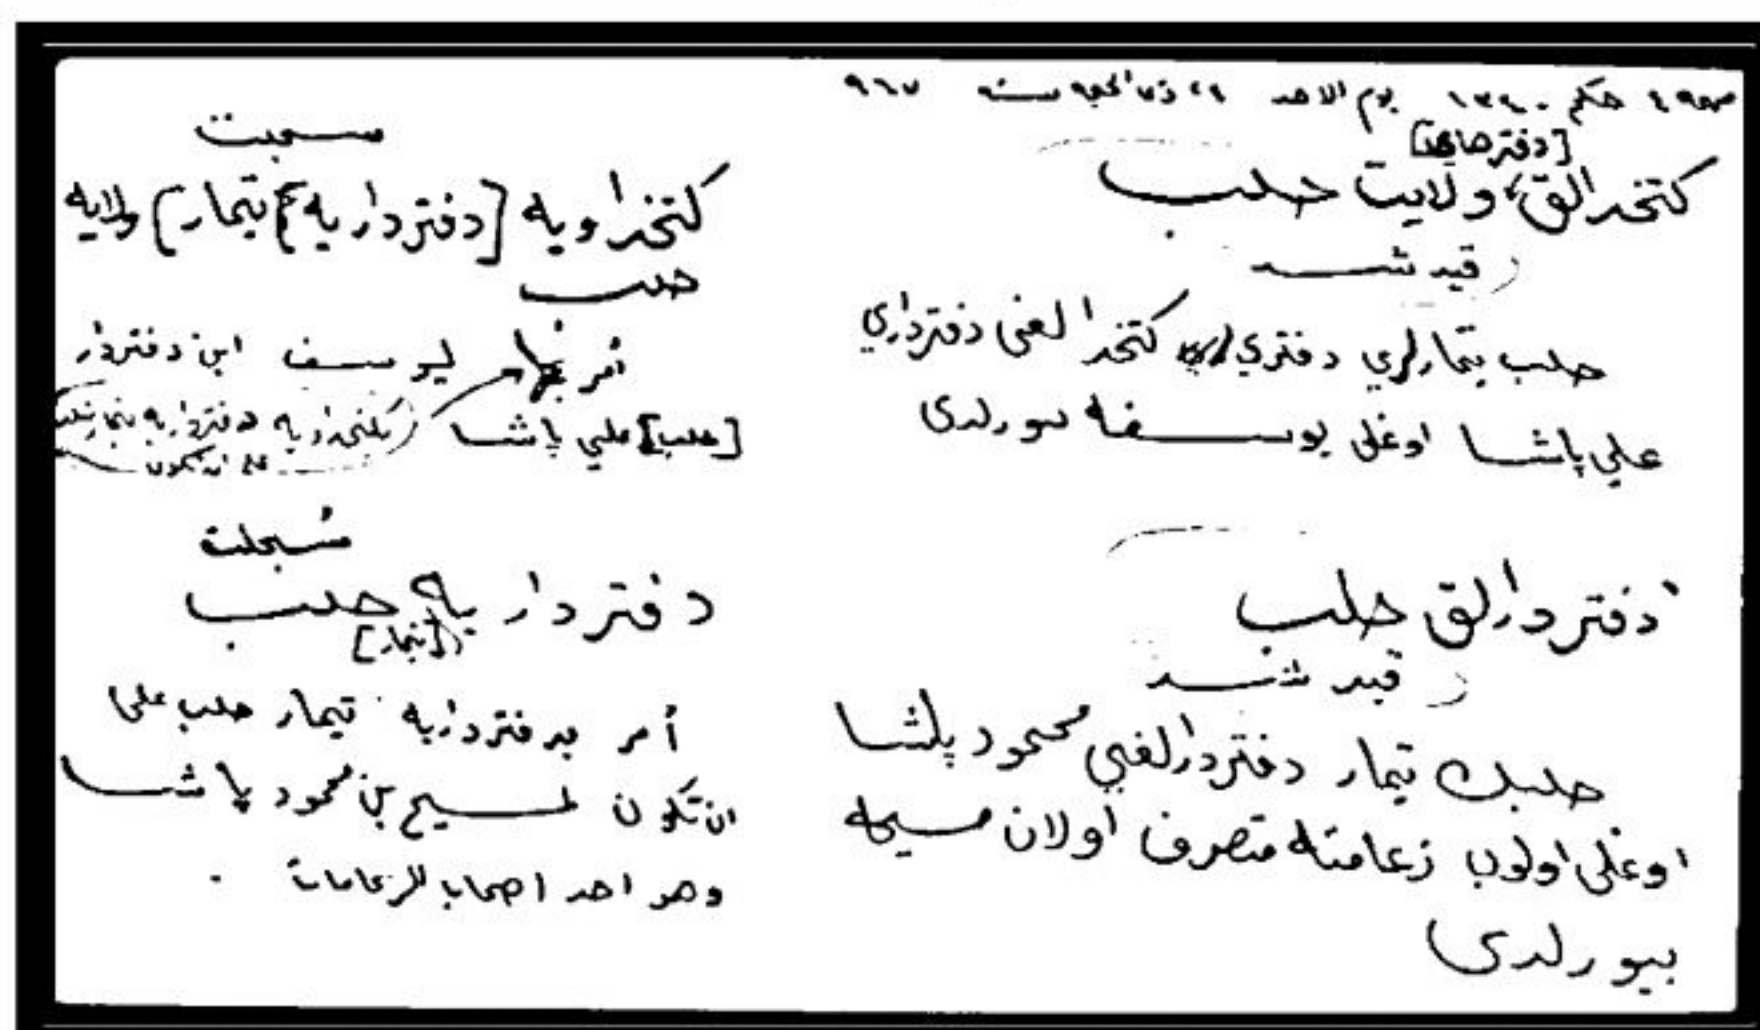 حكم ١٣٤٠ يوم الاحد ٢٩ ذي الحجه سنه ٩٦٧
[دفتر]
كتخدالق ولايت حلب
قيد شد
حلب تيمارلري دفتري كتخدالغى دفترداري
علي پاشا اوغلى يوسفه بيورلدى
دفتردارلق حلب
قيد شد
حلبك تيمار دفتردارلغي محمود پاشا
اوغلى اولوب زعامته متصرف اولان مسيحه
بيورلدى
سجلت
كتخداويه [دفترداريه تيمار] ولايه
حلب
أمر بها ليوسف ابن دفتردار
[حلب] علي پاشا (بكتخداويه دفترداريه تيمار حلب
على ان تكون
سُجلت
دفترداريه حلب
[تيمار]
أمر بدفترداريه تيمار حلب على
ان تكون لمسيح بن محمود پاشا
وهو احد اصحاب الزعامات .